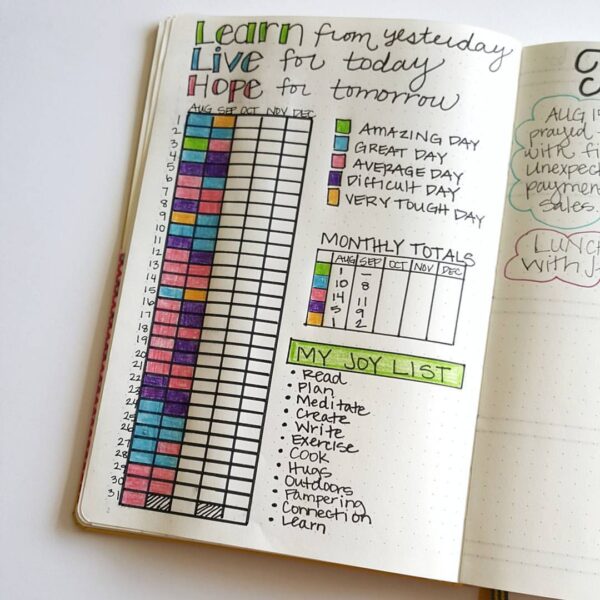 Learn from yesterday
Live for today
Hope for tomorrow
AUG SEP OCT NOV DEC
1
2
3
4
5
6
7
8
9
10
11
12
13
14
15
16
17
18
19
20
21
22
23
24
25
26
27
28
29
30
31
AMAZING DAY
GREAT DAY
AVERAGE DAY
DIFFICULT DAY
VERY TOUGH DAY
MONTHLY TOTALS
AUG SEP OCT NOV DEC
1 —
10 8
14 11
5 9
1 2
MY JOY LIST
• Read
• Plan
• Meditate
• Create
• Write
• Exercise
• COOK
• Hugs
• Outdoors
• Pampering
• Connection
• Learn
AUG
prayed
with
unexpec
paymen
sales.
LUNC
with